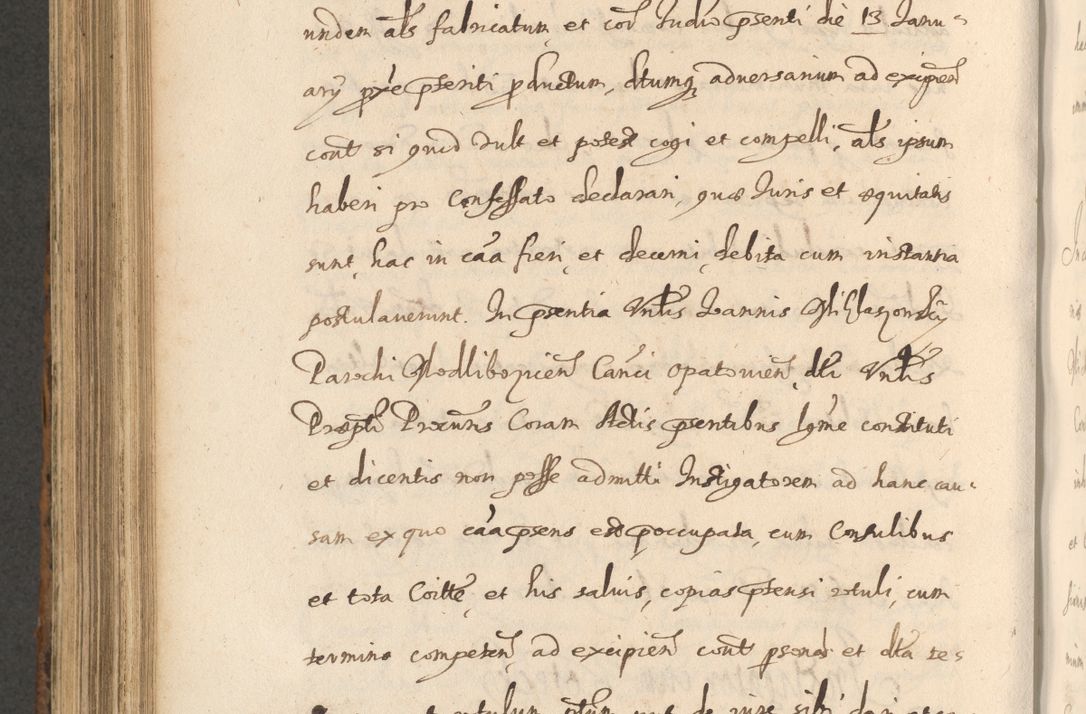 undem als fabricatum, et cor Judio psenti die 13 Janu-
ary pxe pteriti productum, dtumq adversarium ad excipien
cont si quid vult et potest cogi et compelli, als ipsum
haberi pro Confessato declarari, quæ Juris et æquitatis
sunt, hac in caa fieri, et decerni, debita cum instantia
postulaverunt. In psentia Vnblis Joannis
Parochi Canci Opatovien, dti Vnblis
Procuris Coram Actis psentibus lgme constituti
et dicentis non posse admitti Instigatorem ad hanc cau-
sam ex quo caa psens est poccupata, cum Consulibus
et tota Coitte, et his salvis, copias ptensi rotuli, cum
termino competen, ad excipien cont psonas et dta tes-
rotulum de jure sibi dari